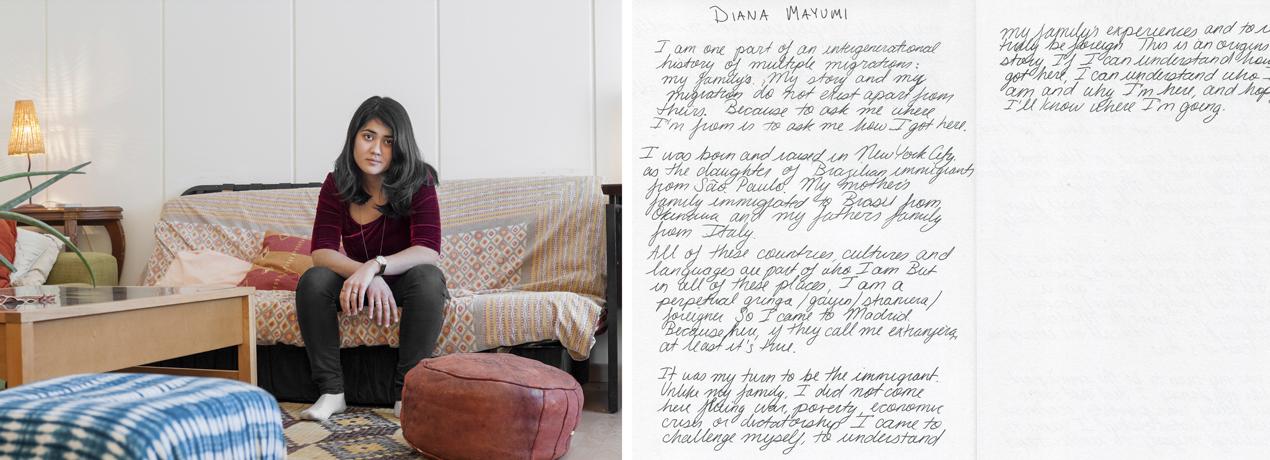 DIANA MAYUMI
I am one part of an intergenerational
history of multiple migrations:
my family's. My story and my
migration do not exist apart from
theirs. Because to ask me where
I'm from is to ask me how I got here.
I was born and raised in New York City.
as the daughter of Brazilian immigrants
from São Paulo. My mother's
family immigrated to Brasil from
Okinawa and my father's family
from Italy.
All of these countries, cultures and
languages are part of who I am But
in all of these places, I am a
perpetual gringa/gaijin/straniera/
foreigner So I came to Madrid.
Because here, if they call me extranjera,
at least it's true.
It was my turn to be the immigrant.
Unlike my family, I did not come
here fleeing war, poverty, economic
crisis or dictatorship I came to
challenge myself, to understand
my family's experiences and to
truly be foreign. This is an origins
story. If I can understand how
got here, I can understand who I
am and why I'm here, and
I'll know where I'm going.